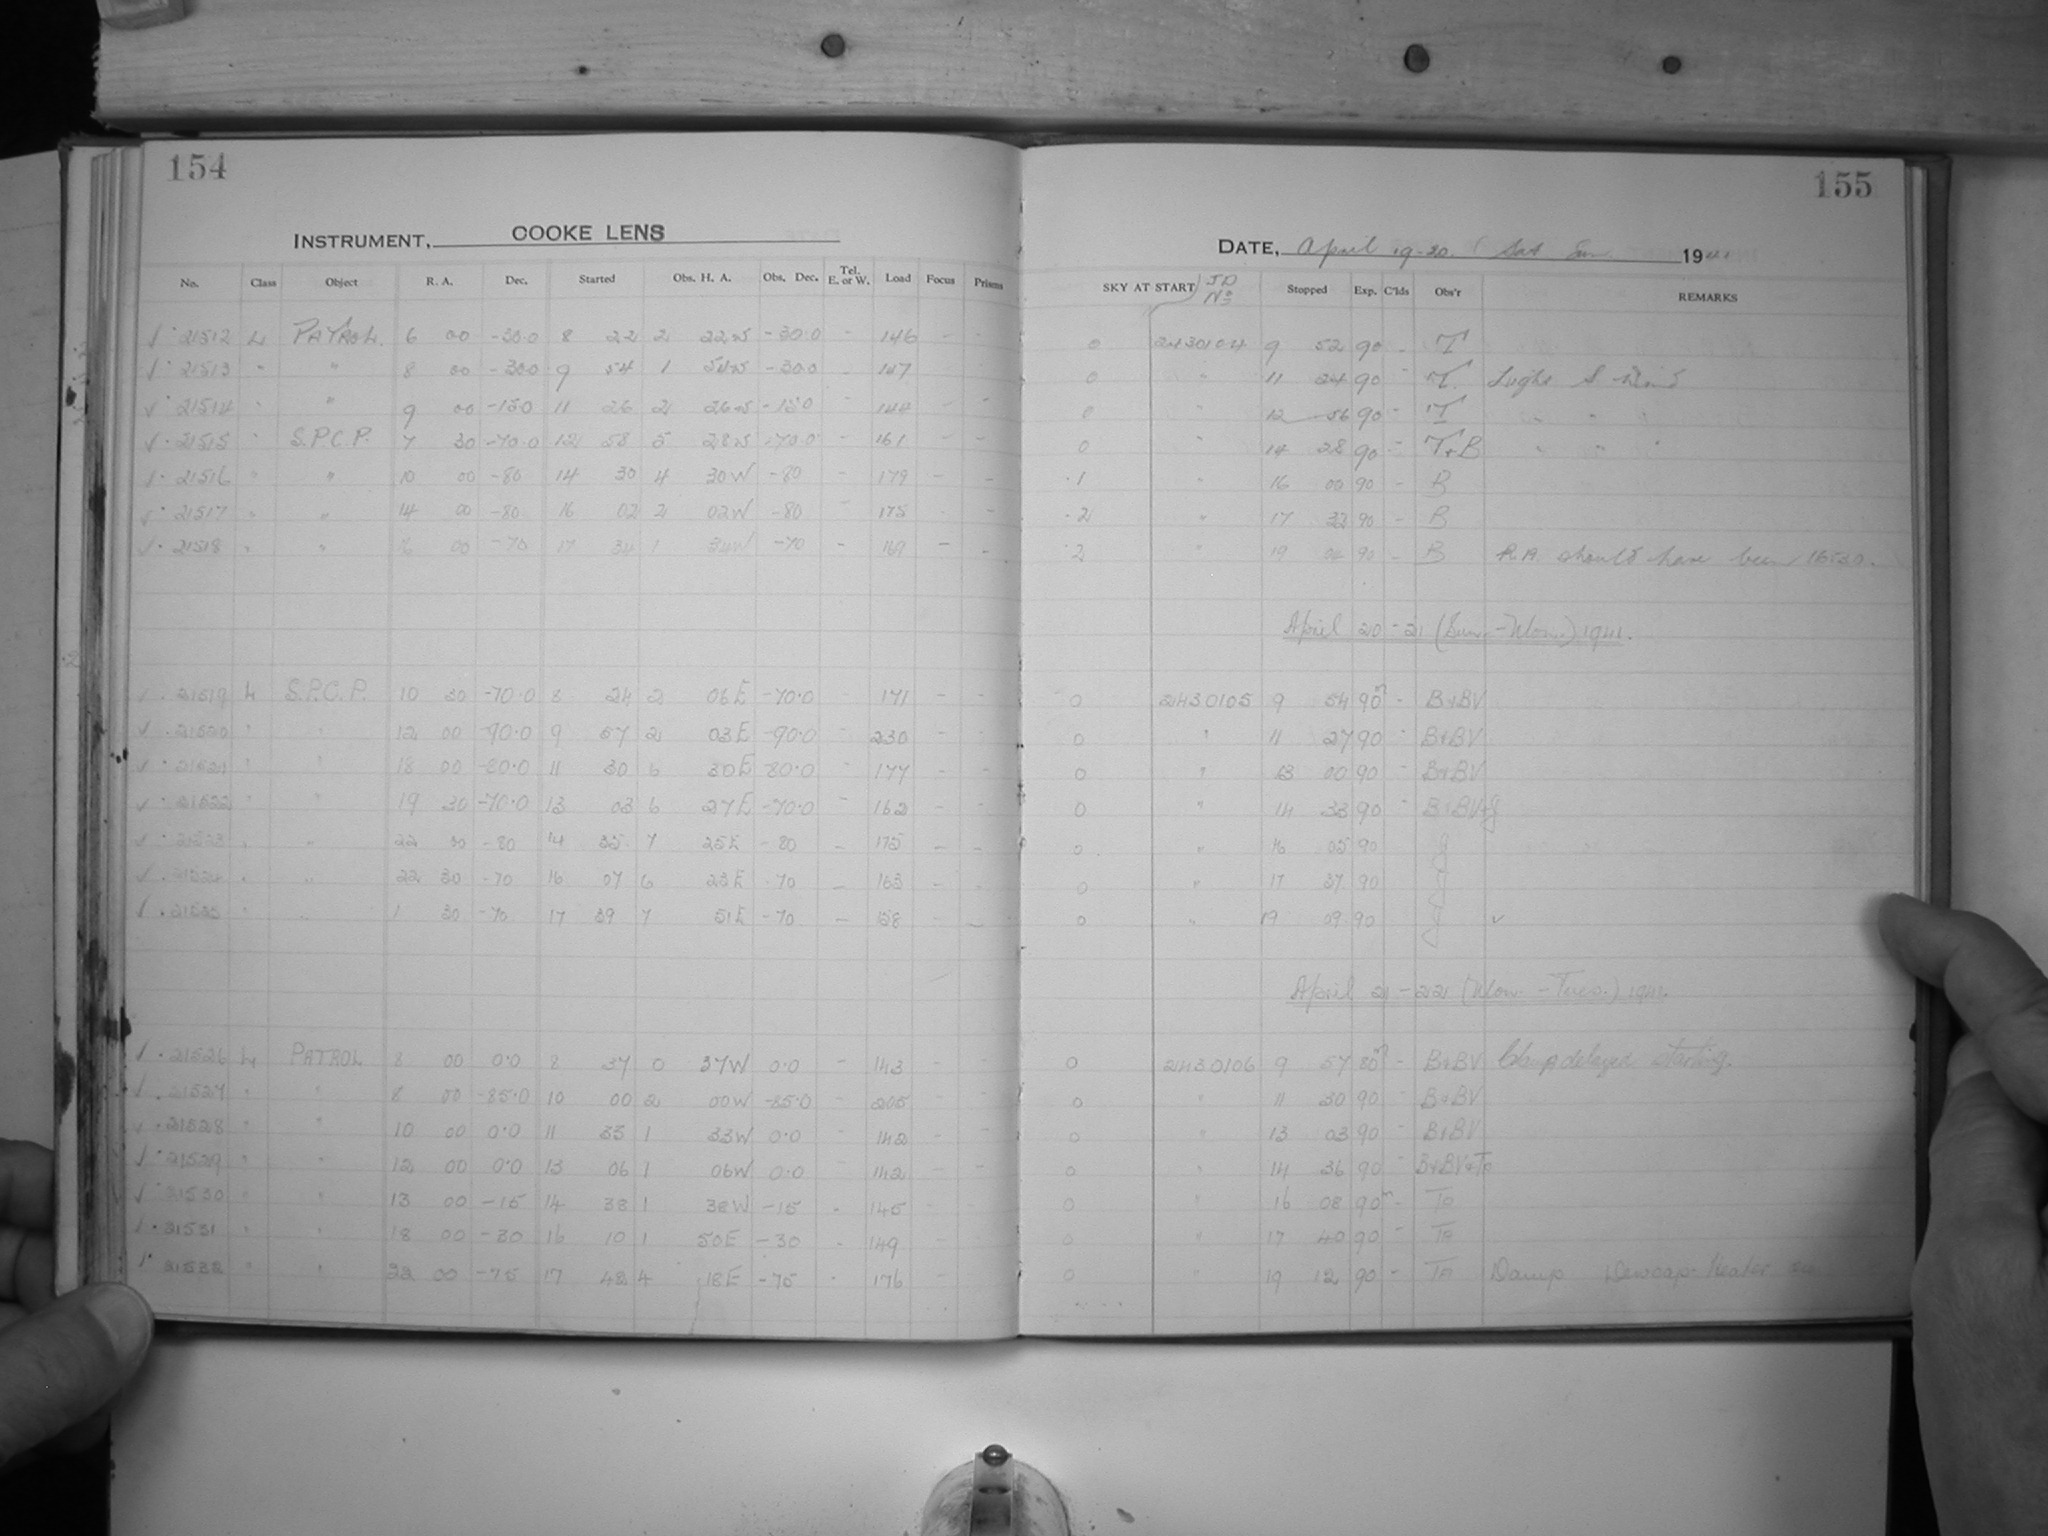 154
INSTRUMENT, COOKE LENS
No. Class Object R. A. Dec. Started Obs. H. A. Obs. Dec. Tel. E. or W. Load Focus Prisms
√ · 21512 L PATROL 6 00 -30.0 8 22 2 22W -30.0 - 146 - -
√ · 21513 " " 8 00 -30.0 9 54 1 54W -30.0 - 147 - -
√ · 21514 " " 9 00 -15.0 11 26 2 26W -15.0 - 144 - -
√ · 21515 " S.P.C.P. 7 30 -70.0 12 58 5 28W -70.0 - 161 - -
√ · 21516 " " 10 00 -80 14 30 4 30W -80 - 179 - -
√ · 21517 " " 14 00 -80 16 02 2 02W -80 - 175 - -
√ · 21518 " " 16 00 -70 17 34 1 34W -70 - 169 - -
√ · 21519 L S.P.C.P. 10 30 -70.0 8 24 2 06E -70.0 - 171 - -
√ · 21520 " " 12 00 -90.0 9 57 2 03E -90.0 - 230 - -
√ · 21521 " " 18 00 -80.0 11 30 6 30E -80.0 - 177 - -
√ · 21522 " " 19 30 -70.0 13 03 6 27E -70.0 - 162 - -
√ · 21523 " " 22 -80 14 35 7 25E -80 - 175 - -
√ · 21524 " " 22 30 -70 16 07 6 23E -70 - 163 - -
√ · 21525 " " 1 30 -70 17 39 7 51E -70 - 158 - -
√ · 21526 L PATROL 8 00 0.0 8 37 0 37W 0.0 - 143 - -
√ · 21527 " " 8 00 -85.0 10 00 2 00W -85.0 - 205 - -
√ · 21528 " " 10 00 0.0 11 33 1 33W 0.0 - 142 - -
√ · 21529 " " 12 00 0.0 13 06 1 06W 0.0 - 142 - -
√ · 21530 " " 13 00 -15 14 38 1 38W -15 - 145 - -
√ · 21531 " " 18 00 -30 16 10 1 50E -30 - 149 - -
√ · 21532 " " 22 00 -75 17 42 4 18E -75 - 176 - -
155
DATE, April 19-20. ( Sat Sun 1941
SKY AT START JD No Stopped Exp. C'lds Obs'r REMARKS
0 2430104 9 52 90 - T
0 " 11 24 90 - T. Light S Wind
0 " 12 56 90 - T " " "
0 " 14 28 90 - T+B " " "
.1 " 16 00 90 - B
.2 " 17 32 90 - B
.2 " 19 04 90 - B R.A. should have been 16:30.
April 20-21 (Sun.-Mon.) 1941.
0 2430105 9 54 90m - B+BV
0 " 11 27 90 - B+BV
0 " 13 00 90 - B+BV
0 " 14 33 90 - B+BV+J
0 " 16 05 90 J
0 " 17 37 90 J
0 " 19 09 90 J
April 21-22 (Mon.-Tues.) 1941.
0 2430106 9 57 80m - B+BV delayed starting.
0 " 11 30 90 - B+BV
0 " 13 03 90 - B+BV
0 " 14 36 90 - B+BV+Ta
0 " 16 08 90m - Ta
0 " 17 40 90 - Ta
0 " 19 12 90 - Ta Damp. Dewcap heater